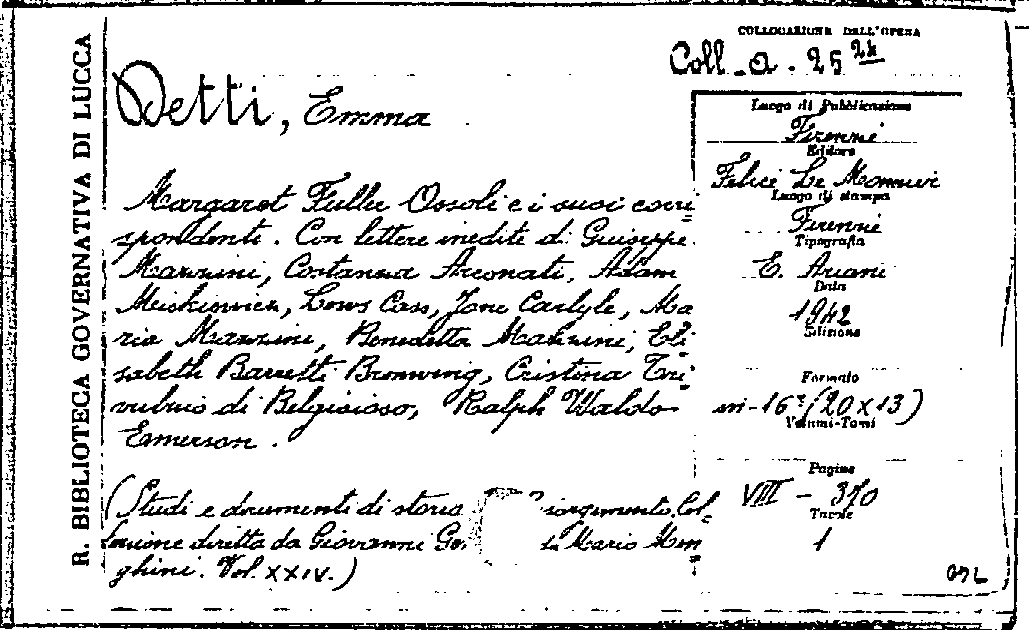 R. BIBLIOTECA GOVERNATIVA DI LUCCA
COLLOCAZIONE DELL'OPERA
Coll. a. 25 24
Detti, Emma
Margaret Fulle Ossoli e i suoi corri=
spondenti. Con lettere inedite di Giuseppe
Mazzini, Costanza Arconati, Adam
Meiskinvicz, Lows Cass, Jane Carlyle, Ma
ria Mazzini, Benedetta Mazzini, Eli=
sabeth Barretti Bronwing, Cristina Tri
vulnio di Belgioioso, Ralph Waldo
Emerson.
(Studi e documenti di storia iorgimento. Col=
lezione diretta da Giovanni Ge Mario Men
ghini. Vol. XXIV.)
Luogo di Pubblicazione
Firenze
Editore
Felici Le Monnier
Luogo di stampa
Firenze
Tipografia
E. Ariani
Data
1942
Edizione
Formato
in-16° (20x13)
Volumi-Tomi
Pagine
VIII - 370
Tavole
1